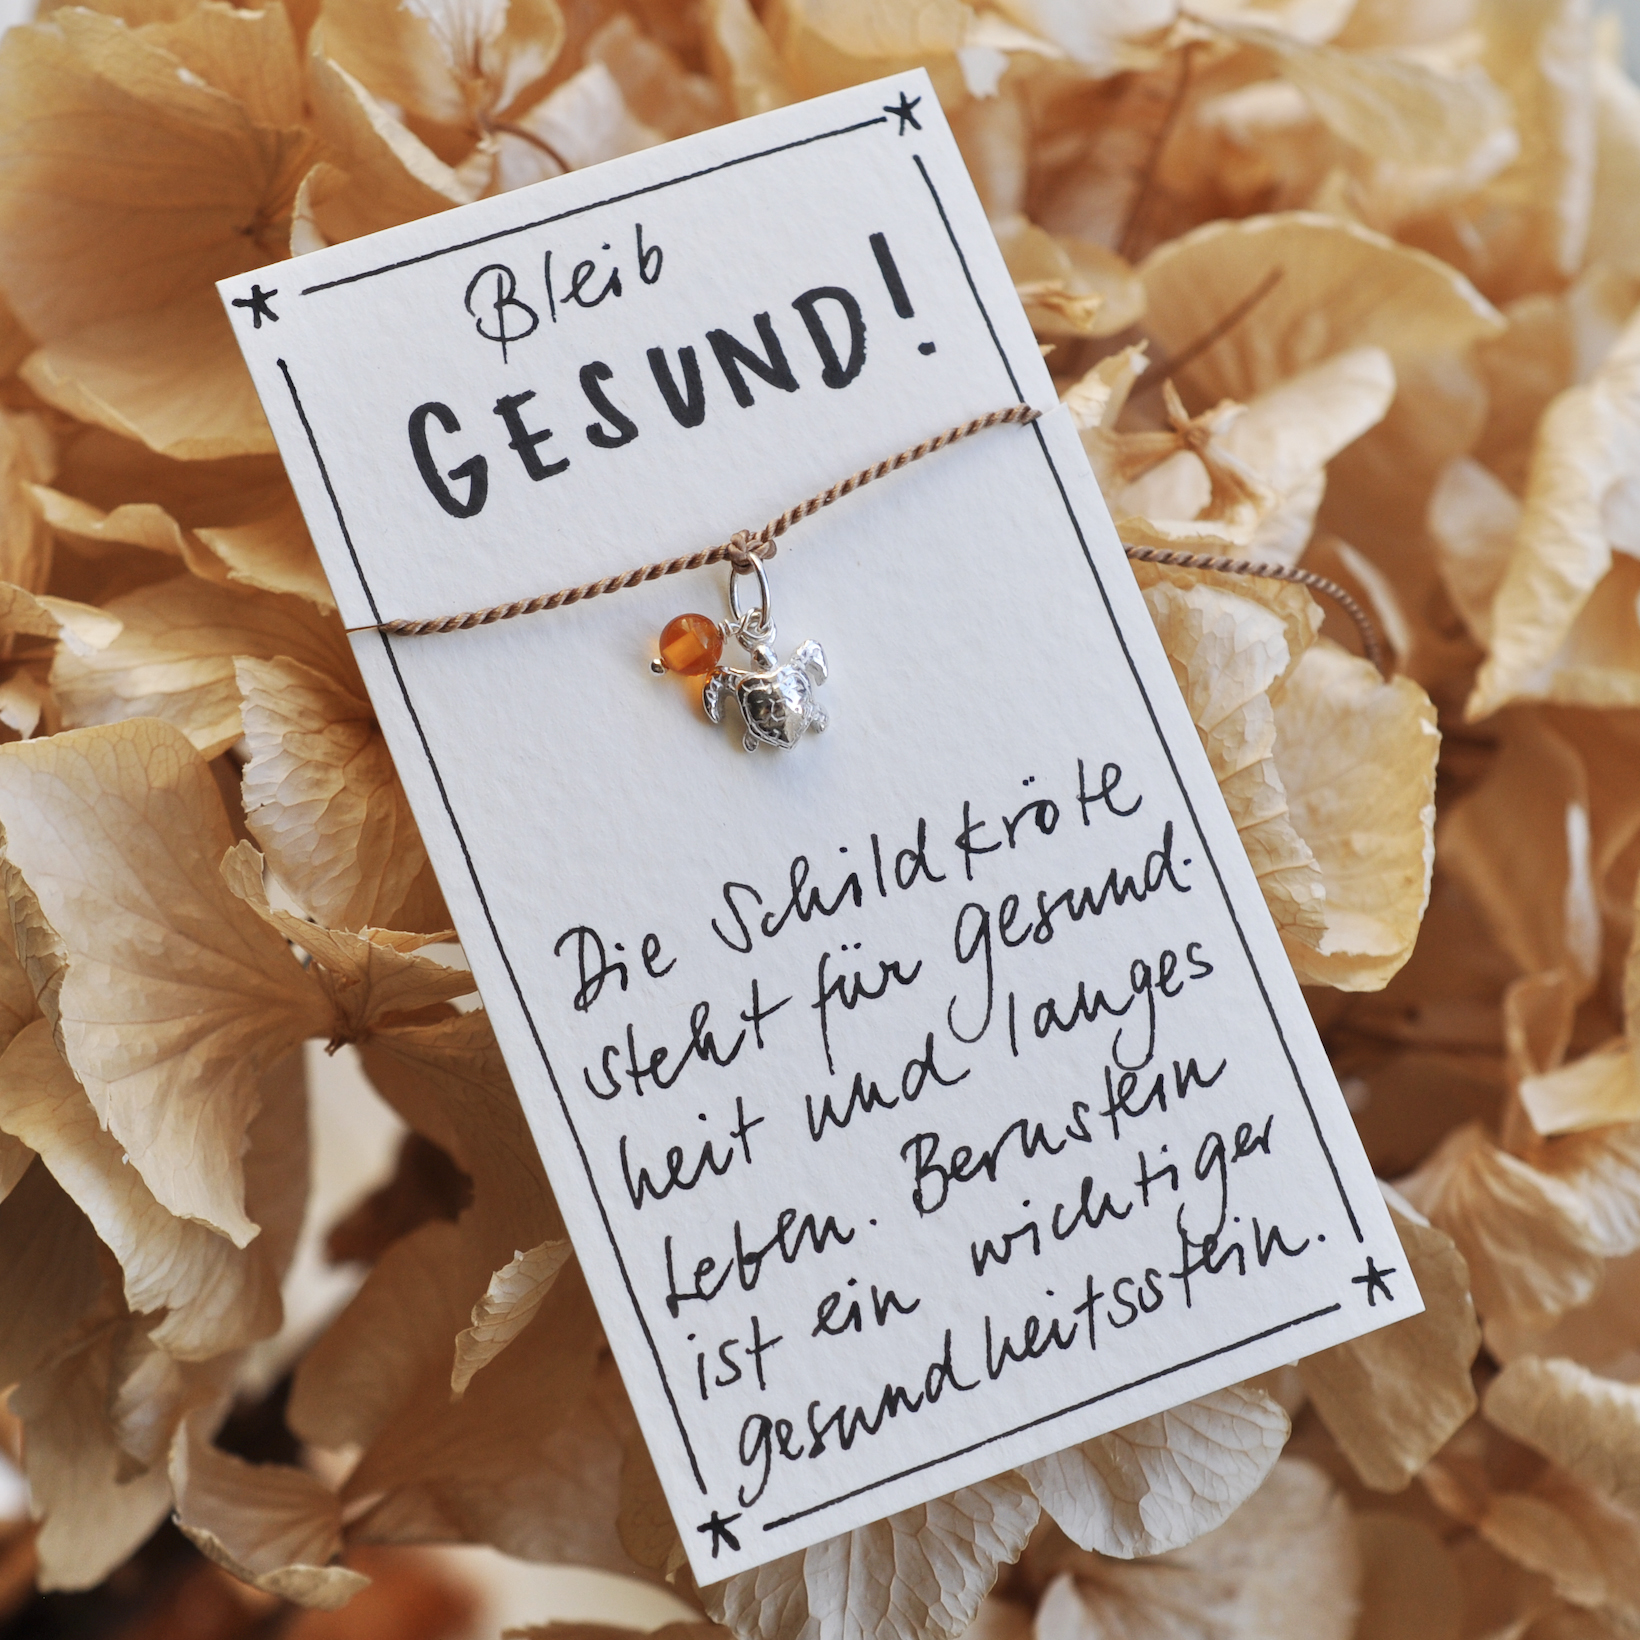 Bleib
GESUND!
Die Schildkröte
steht für gesund-
heit und langes
Leben. Bernstein
ist ein wichtiger
gesundheitsstein.